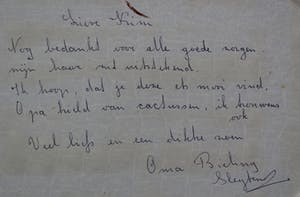 Lieve Krim
Nog bedankt voor alle goede zorgen.
mijn haar zit uitstekend.
Ik hoop, dat je deze ets mooi vind.
Opa hield van cactussen, ik trouwens
ook
Veel liefs en een dikke zoen
Oma